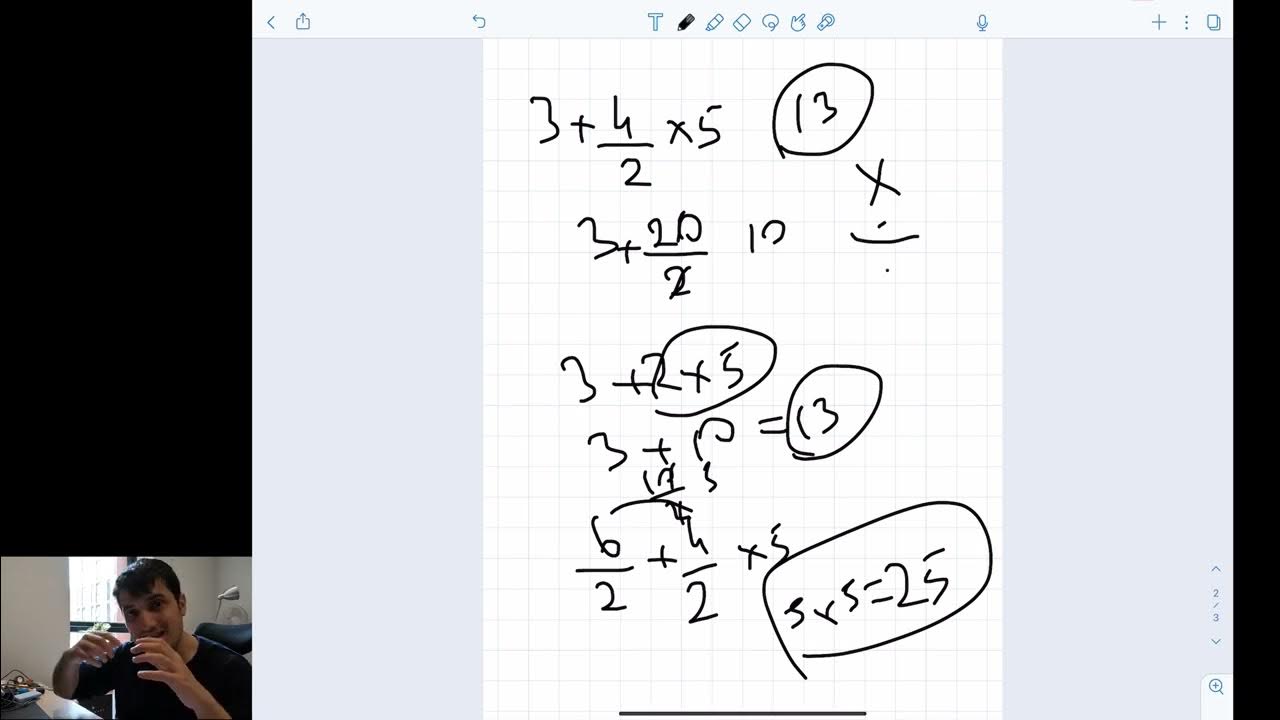 T
3 + 4/2 × 5 13
×
÷
3 + 20/2 10
3 + 2 × 5
3 + 10 = 13
6/2 + 4/2 × 5
5 × 5 = 25
2
/
3